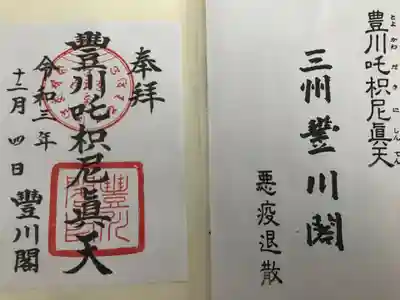 とよかわだきにしんてん
豊川吒枳尼眞天
三州豐川閣
悪疫退散
奉拝
豐川吒枳尼眞天
令和三年
十二月四日 豐川閣